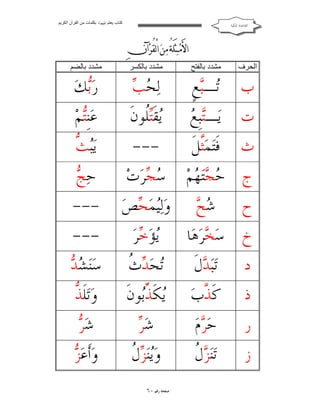 كتاب يعلم تهجيء بكلمات من القرآن الكريم
الأَمْثِلَةُ مِنَ الْقُرْآنِ
الحرف مشدد بالفتح مشدد بالكسر مشدد بالضم
ب تُـبَّعٍ لِحُبِّ رَبُّكَ
ت يَـتَّبِعُ يُقَتِّلُونَ عَنِتُّمْ
ث فَتَمَثَّلَ --- يَبُثُّ
ج حُجَّتَهُمْ سُجِّرَتْ حِجُّ
ح شُحَّ وَلِيُمَحِّصَ ---
خ سَخَّرَهَا يُؤَخِّرَ ---
د تَبَدَّلَ تُحَدِّثُ سَنَشُدُّ
ذ كَذَّبَ يُكَذِّبُونَ وَتَلَذُّ
ر حَرَّمَ شَرِّ شَرُّ
ز تَنَزَّلُ وَيُنَزِّلُ وَأَعَزُّ
صفحة رقم ٦٠